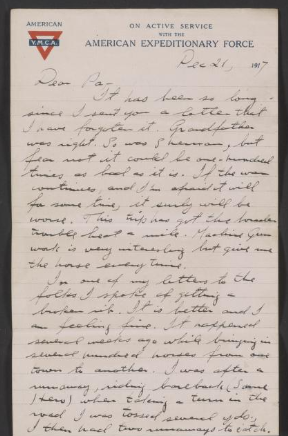 AMERICAN
Y.M.C.A.
ON ACTIVE SERVICE
WITH THE
AMERICAN EXPEDITIONARY FORCE
Dec 21, 1917
Dear Pa-
It has been so long
since I sent you a letter that
I have forgoten it. Grandfather
was right. So was Sherman, but
fear not it could be one-hundred
times as bad as it is. If the war
continues, and I'm afraid it will
for some time, it surely will be
worse. This trip has got the border
trouble beat a mile. Machine Gun
work is very interesting but give me
the horse every time.
In one of my letters to the
folks I spoke of getting a
broken rib. It is better and I
am feeling fine. It happened
several weeks ago while bringing
several hundred horses from one
town to another. I was after a
runaway, riding bareback (some
hero) when taking a turn in the
road I was tossed several yds.
I then had two runaways to catch.